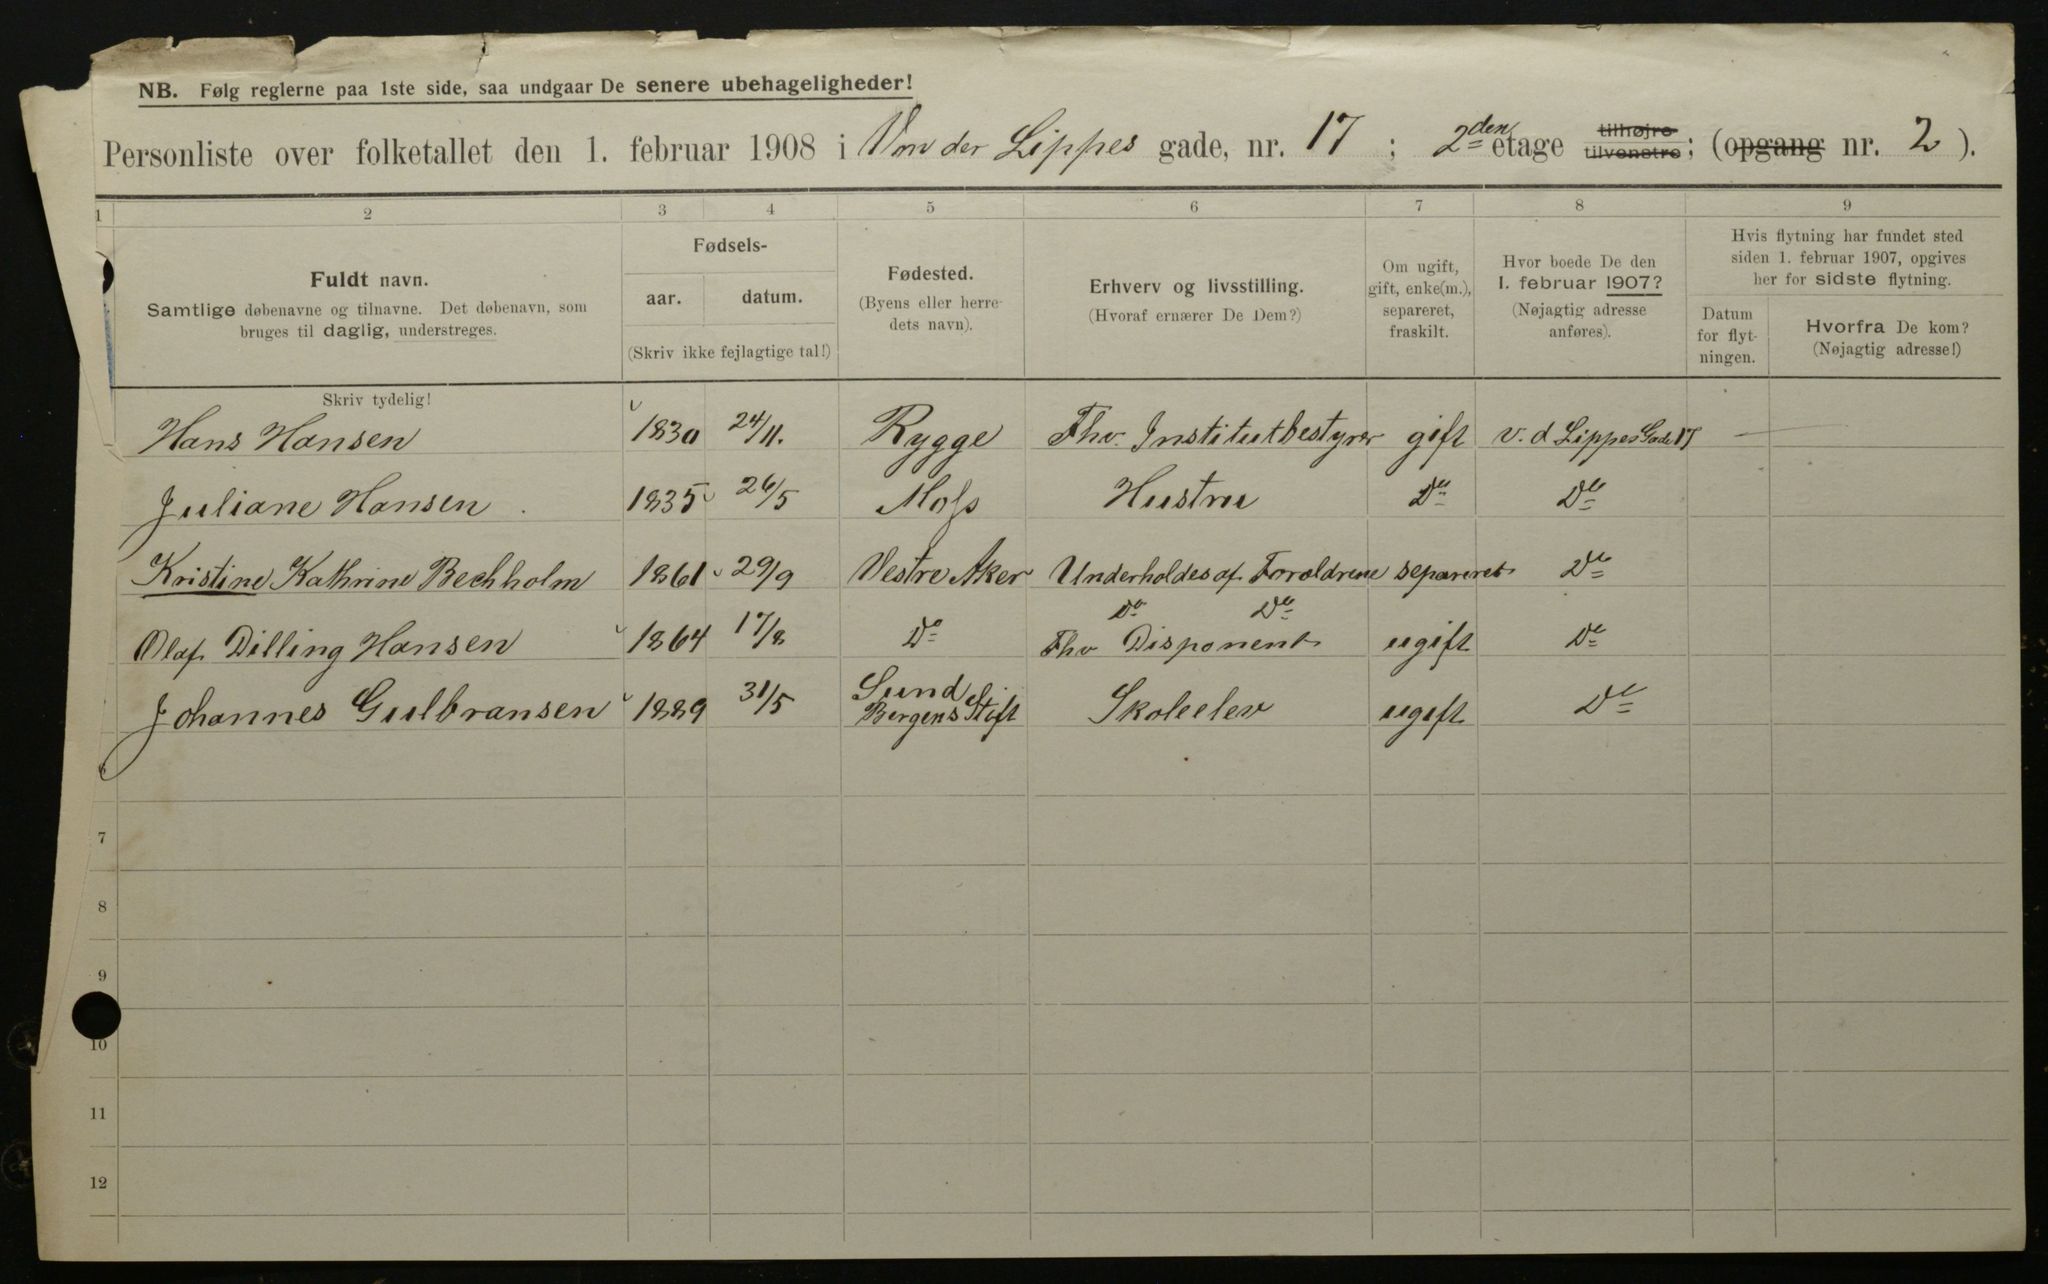 NB. Følg reglerne paa 1ste side, saa undgaar De senere ubehageligheder!
Personliste over folketallet den 1. februar 1908 i Von der Lippes gade, nr. 17 ; 2den etage tilhøjre tilvenstre; (opgang nr. 2 ).
1 2 3 4 5 6 7 8 9
Fuldt navn.
Samtlige døbenavne og tilnavne. Det døbenavn, som
bruges til daglig, understreges.
Fødsels-
aar. datum.
(Skriv ikke fejlagtige tal!)
Fødested.
(Byens eller herre-
dets navn).
Erhverv og livsstilling.
(Hvoraf ernærer De Dem?)
Om ugift,
gift, enke(m.),
separeret,
fraskilt.
Hvor boede De den
1. februar 1907?
(Nøjagtig adresse
anføres).
Hvis flytning har fundet sted
siden 1. februar 1907, opgives
her for sidste flytning.
Datum
for flyt-
ningen.
Hvorfra De kom?
(Nøjagtig adresse!)
Skriv tydelig!
Hans Hansen 1830 24/11. Rygge Fhv. Institutbestyrer gift v. d Lippes Gade 17 —
Juliane Hansen 1835 26/5 Moss Hustru Do Do
Kristine Kathrine Bechholm 1861 29/9 Vestre Aker Underholdes af Forældrene separeret Do
Do Do
Olaf Dilling Hansen 1864 17/8 Do Fhv Disponent ugift Do
Johannes Gulbransen 1889 31/5 Sund Bergens Stift Skoleelev ugift Do
6
7
8
9
10
11
12